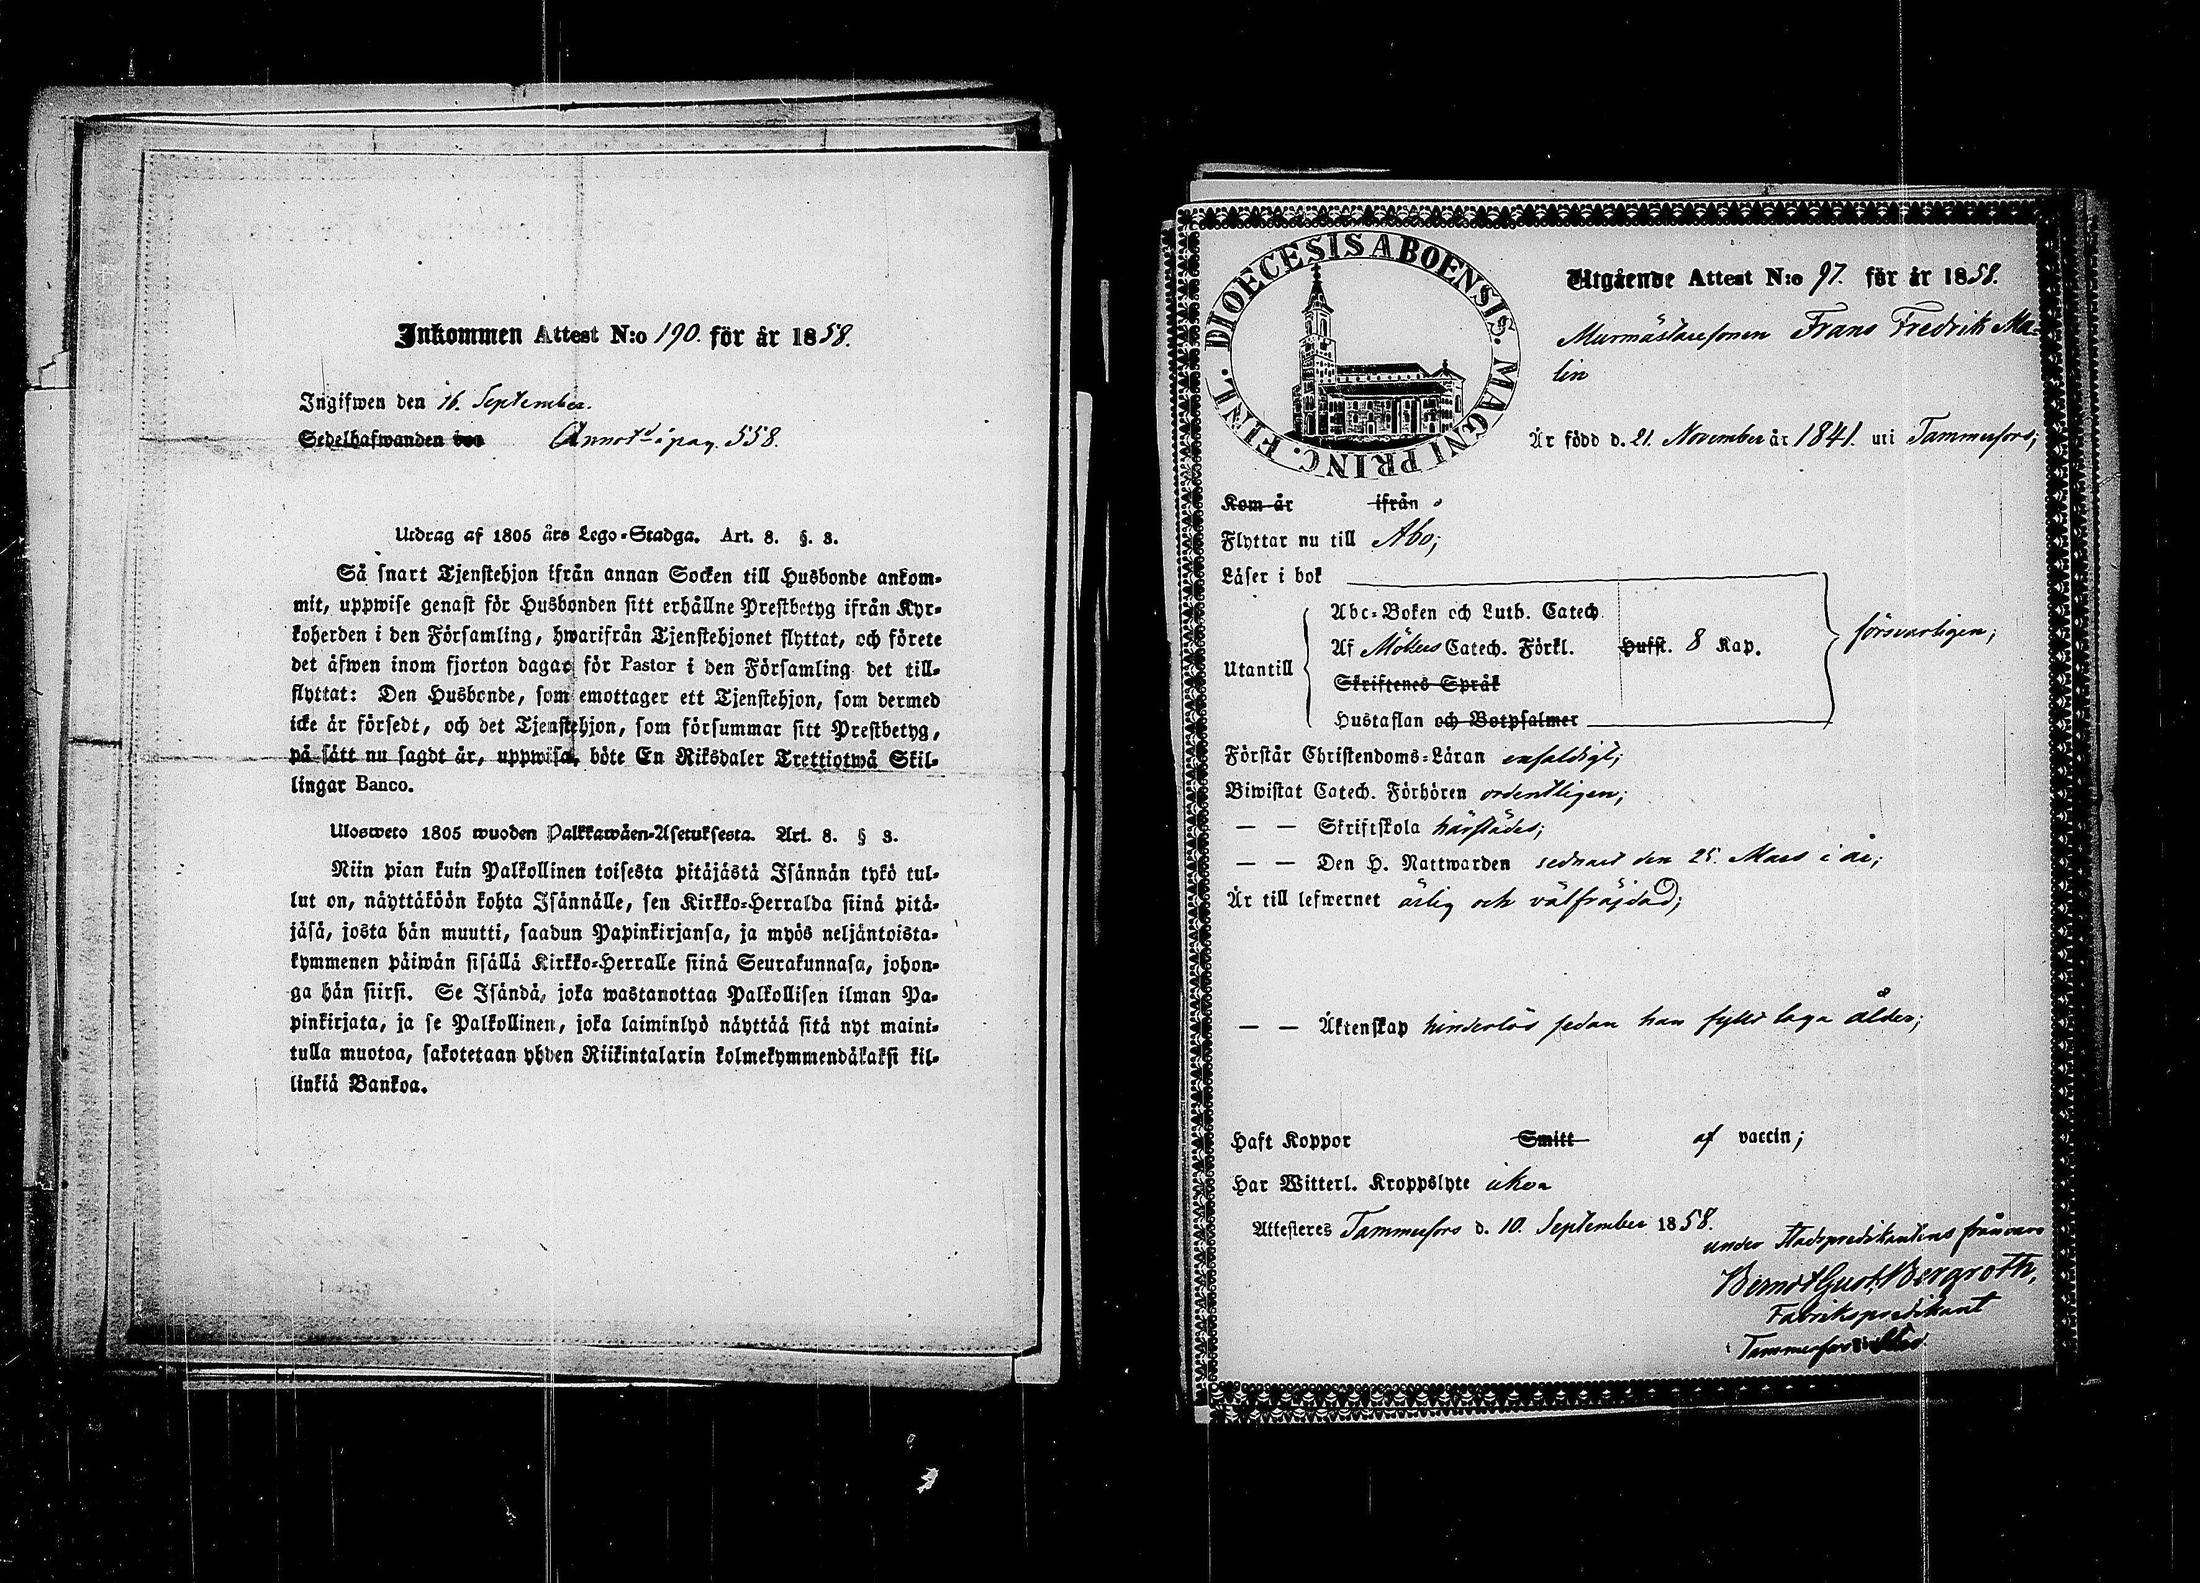 Inkommen Attest N:o 190. för år 1858.
Ingifwen den 16. September.
Sedelhafwanden bor Annotd i pag. 558.
Utdrag af 1805 års Lego-Stadga. Art. 8. §. 3.
Så snart Tjenstehjon ifrån annan Socken till Husbonde ankom-
mit, uppwise genast för Husbonden sitt erhållne Prestbetyg ifrån Kyr-
koherden i den Församling, hwarifrån Tjenstehjonet flyttat, och förete
det äfwen inom fjorton dagar för Pastor i den Församling det till-
flyttat: Den Husbonde, som emottager ett Tjenstehjon, som dermed
icke är försedt, och det Tjenstehjon, som försummar sitt Prestbetyg,
på sätt nu sagdt är, uppwisa, böte En Riksdaler Trettiotwå Skil-
lingar Banco.
Ulosweto 1805 wuoden Palkkawäen-Asetuksesta. Art. 8. § 3.
Niin pian kuin Palkollinen toisesta pitäjästä Isännän tykö tul-
lut on, näyttäköön kohta Isännälle, sen Kirkko-Herralda siinä pitä-
jäsä, josta hän muutti, saadun Papinkirjansa, ja myös neljäntoista-
kymmenen päiwän sisällä Kirkko-Herralle siinä Seurakunnasa, johon-
ga hän siirsi. Se Isändä, joka wastanottaa Palkollisen ilman Pa-
pinkirjata, ja se Palkollinen, joka laiminlyö näyttää sitä nyt maini-
tulla muotoa, sakotetaan yhden Riikintalarin kolmekymmendäkaksi kil-
linkiä Bankoa.
DIOECESIS ABOENSIS. MAGNI PRINC. FINL.
Utgående Attest N:o 97. för år 1858.
Murmästaresonen Frans Fredrik Ma-
lin
Är född d. 21. November år 1841. uti Tammerfors;
Kom år ifrån
Flyttar nu till Åbo;
Läser i bok
Abc-Boken och Luth. Catech.
Utantill Af Möllers Catech. Förkl. Hufst. 8 Kap. försvarligen;
Skriftenes Språk
Hustaflan och Botpsalmer
Förstår Christendoms-Läran enfaldigt;
Biwistat Catech. Förhören ordentligen;
— — Skriftskola härstädes;
— — Den H. Nattwarden sednast den 25. Mars i år;
Är till lefwernet ärlig och välfräjdad;
— — Äktenskap hinderlös sedan han fyllt laga ålder;
Haft Koppor Smitt af vaccin;
Har Witterl. Kroppslyte icke
Attesteres Tammerfors d. 10. September 1858.
under Stadspredikantens frånvaro
Berndt Gust. Bergroth,
Fabrikspredikant
Tammerfors